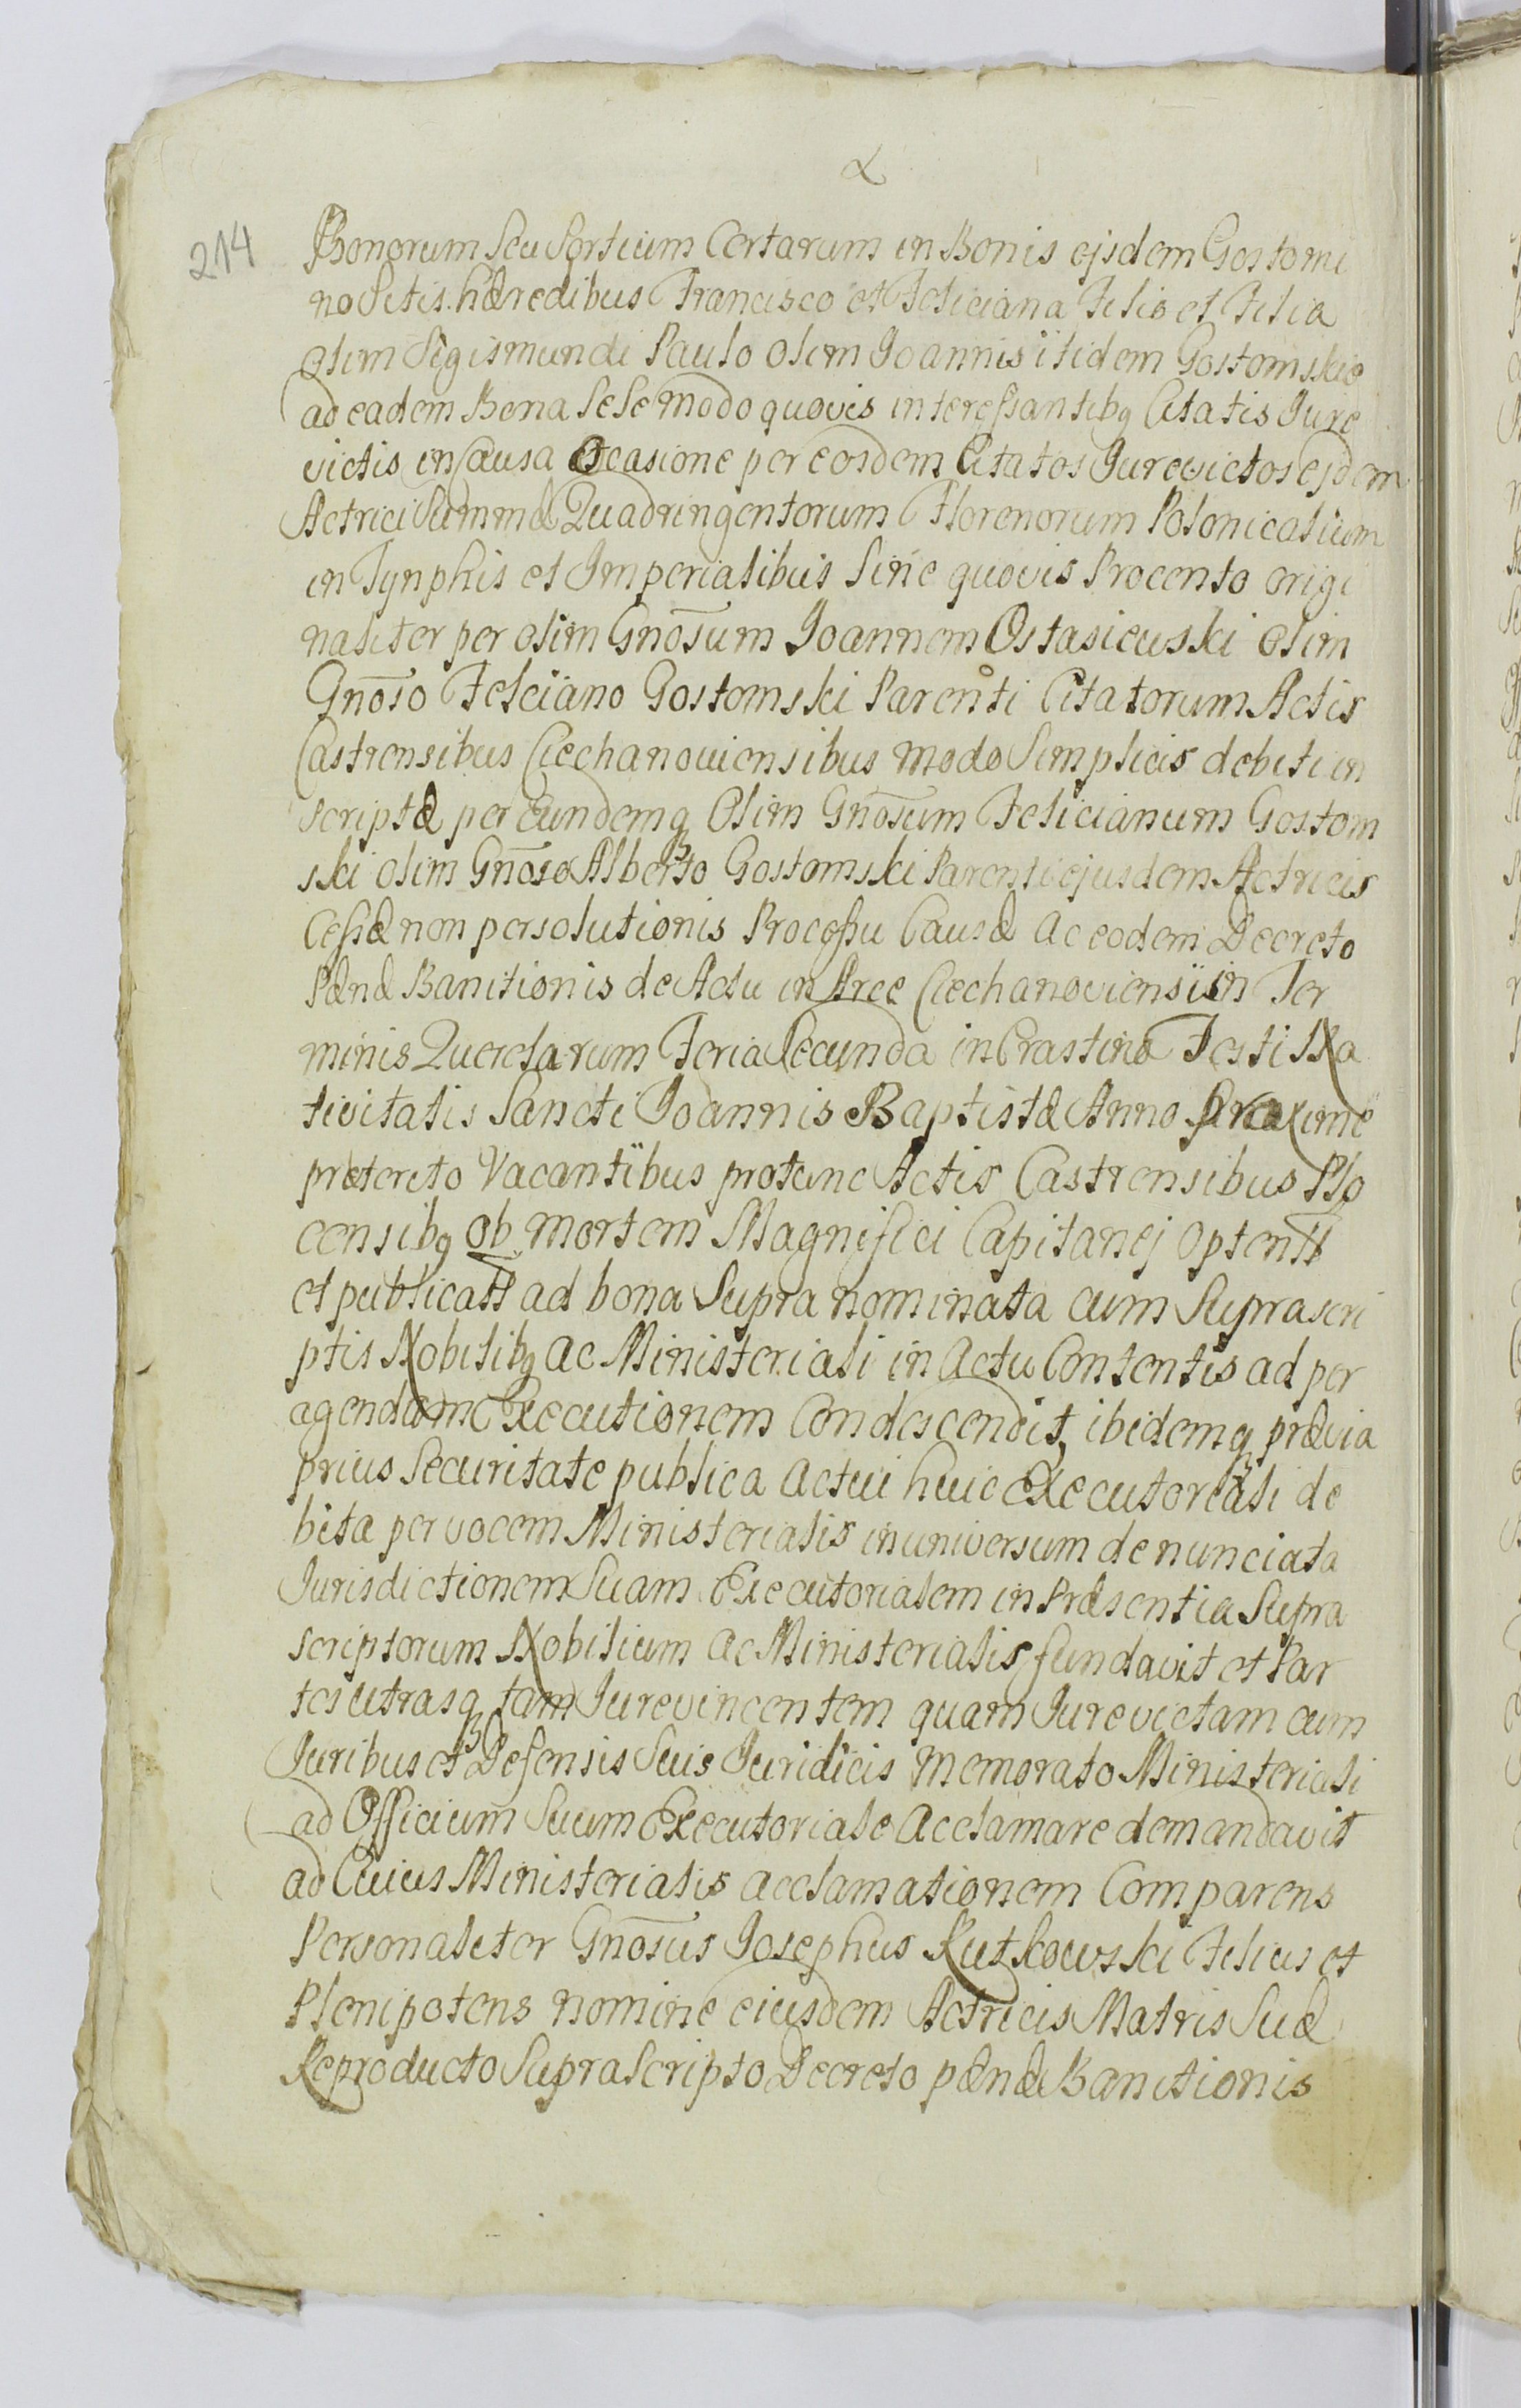 α
214
Bonorum Seu Sortium Certarum in Bonis ejsdem Gostomi
no Sitis hæredibus Francisco et Feliciana Filio et Filia
olim Sigismundi Paulo olim Joannis itidem Gostomskie
ad eadem Bona Sese modo quovis interessantibq Citatis Jure
victis in Causa Occasione per eosdem Citatos Jurevictos ejdem
Actrici Summæ Quadringentorum Florenorum Polonicalium
in Tynphis et Imperialibus Sine quovis Procento origi
naliter per olim Gnōsum Joannem Ostasiewski olim
Gnōso Felciano Gostomski Parenti Citatorum Actis
Castrensibus Ciechanoviensibus modo Simplicis debiti in
scriptæ per Eundemq Olim Gnōsum Felicianum Gostom
ski olim Gnōso Alberto Gostomski Parenti ejusdem Actricis
Cessæ non persolutionis Processu Causæ Ac eodem Decreto
Pænæ Banitionis de Actu in Arce Ciechanoviensi in Ter
minis Querelarum Feria Secunda in Crastino Festi Na
tivitatis Sancti Joannis Baptistæ Anno proxime
præterito Vacantibus protunc Actis Castrensibus Plo
censibq ob mortem Magnifici Capitanej optentt
et publicatt ad bona Supra nominata cum Suprascri
ptis Nobilibq ac Ministeriali in actu Contentis ad per
agendam Executionem Condescendit, ibidemq prævia
prius Securitate publica actui huic Executoriali de
bita per vocem Ministerialis in universum denunciata
Jurisdictionem Suam Executorialem in Præsentia Supra
scriptorum Nobilium ac Ministerialis fundavit et Par
tes utrasq tam Jurevincentem quam Jurevictam cum
Juribus et Defensis Suis Juridicis memorato Ministeriali
ad Officium Suum Executoriale Acclamare demandavit
ad Cuius Ministerialis acclamationem Comparens
Personaliter Gnōsus Josephus Rutkowski Filius et
Plenipotens nomine eiusdem Actricis Matris Suæ
Reproducto Supra Scripto Decreto pænæ Banitionis